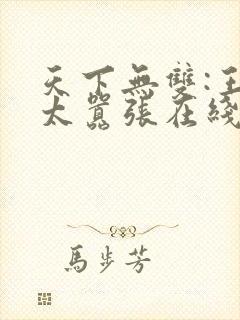 天下無雙:王
太囂張在綫
馬步芳